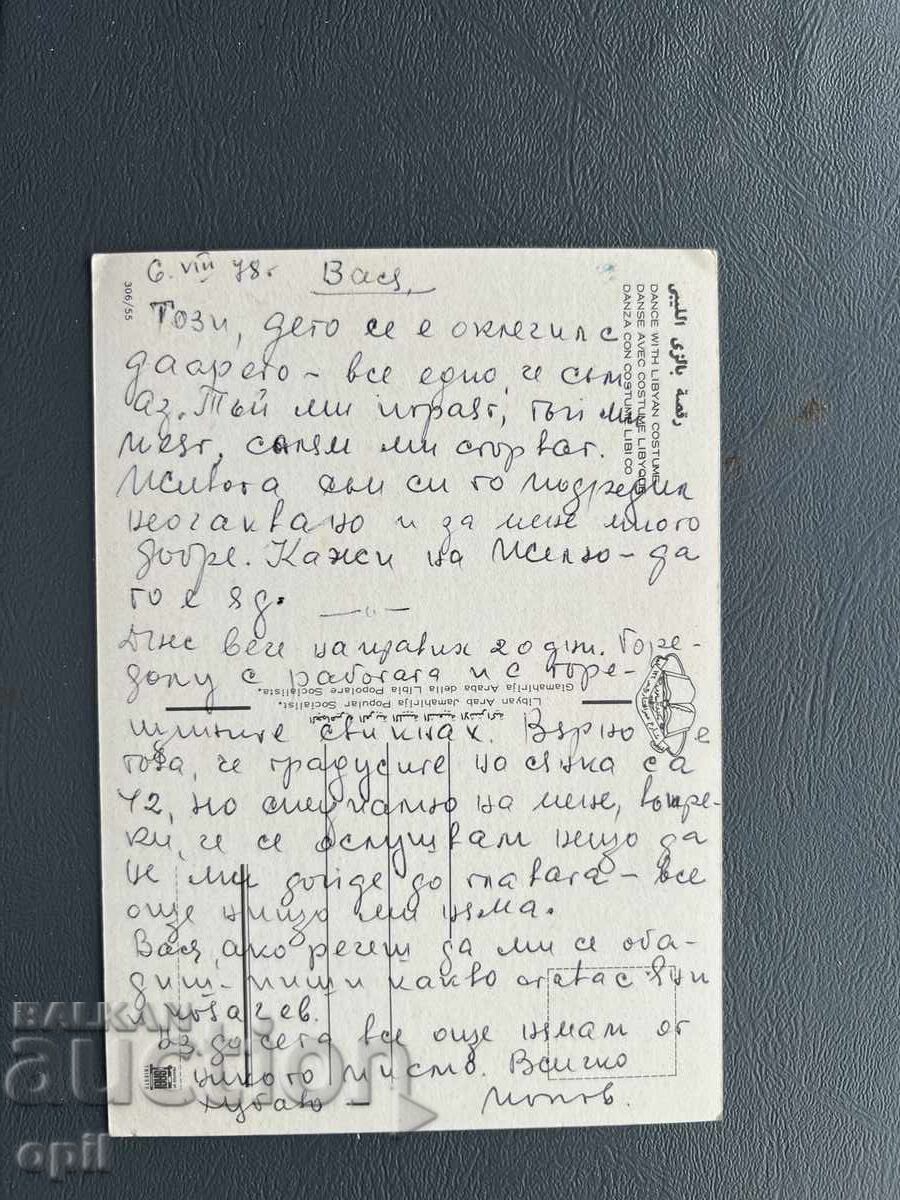 6. VIII 78г Вася,
Този, дето се е оклещил с
даарето – все едно, че съм
аз. Тъй ми играят, тъй ми
пеят, сянка ми сторват.
Живота съм си го подредил
неочаквано и за мене много
добре. Кажи на Желю – да
го е яд.
Днес вече направих 20 дни. Горе-
долу с работата и с горе-
щините свикнах. Вярно е
това, че градусите на сянка са
42, но специално на мене, въпре-
ки, че се ослушвам нещо да
не ми дойде до главата – все
още нищо ми няма.
Вася, ако речеш да ми се оба-
диш – пиши какво става с
и
Аз до сега все още нямам от
никого писмо. Всичко
хубаво – Попов.
306/55
رقصة بالزي الليبي
DANCE WITH LIBYAN COSTUME
DANSE AVEC COSTUME LIBYQUE
DANZA CON COSTUME LIBICO
الجماهيرية العربية الليبية الشعبية الاشتراكية
Libyan Arab Jamahirija Popular Socialist.
Giamahirija Araba della Libia Popolare Socialista.
BALKAN
auction
opil